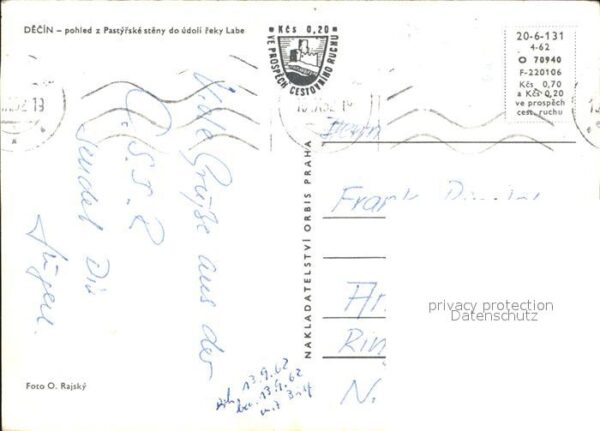 DĚČÍN – pohled z Pastýřské stěny do údolí řeky Labe
Kčs 0,20
VE PROSPĚCH CESTOVNÍHO RUCHU
20-6-131
4-62
O 70940
F-220106
Kčs 0,70
a Kčs 0,20
ve prospěch
cest. ruchu
Viele Grüße aus der
Č.S.S.R
sendet Dir
Jürgen.
NAKLADATELSTVÍ ORBIS PRAHA
Herrn
Frank
Ar
Rin
N.
privacy protection
Datenschutz
13.9.62
13.9.62
Foto O. Rajský